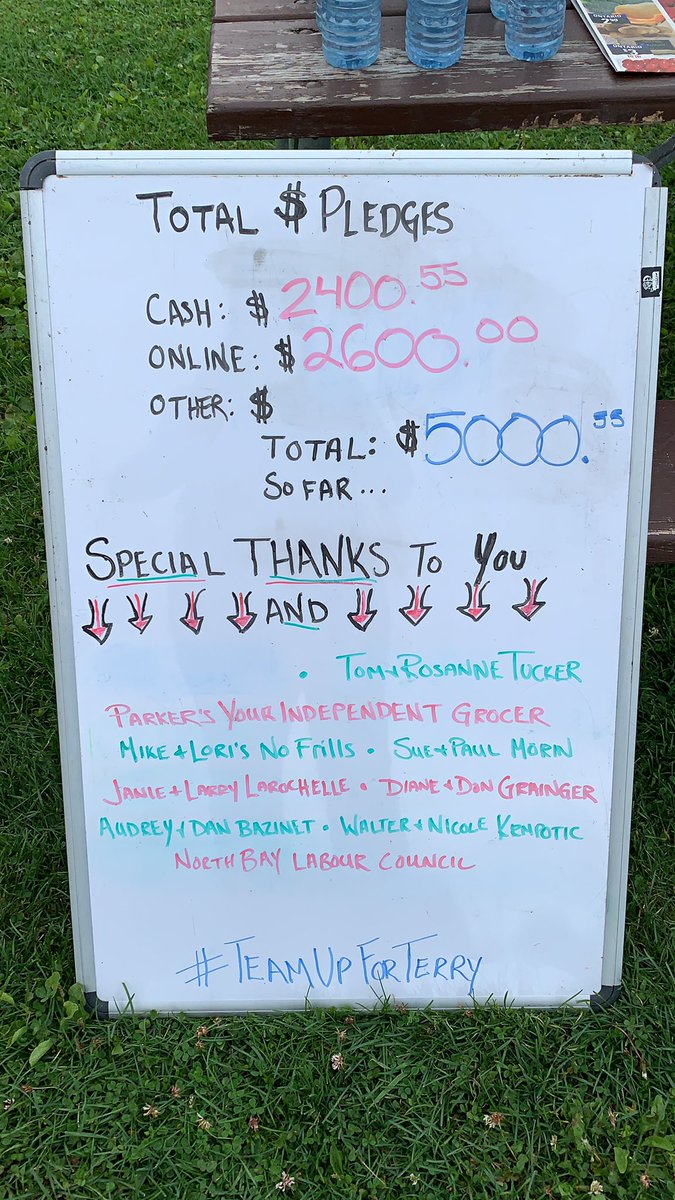 TOTAL $ PLEDGES
CASH: $ 2400.55
ONLINE: $ 2600.00
OTHER: $
TOTAL: $ 5000.55
SO FAR...
SPECIAL THANKS TO YOU
AND
• TOM + ROSANNE TUCKER
PARKER'S YOUR INDEPENDENT GROCER
MIKE + LORI'S NO FRILLS • SUE + PAUL MORIN
JANIE + LARRY LAROCHELLE • DIANE + DON GRAINGER
AUDREY + DAN BAZINET • WALTER + NICOLE KENPOTIC
NORTH BAY LABOUR COUNCIL
#TEAMUPFORTERRY